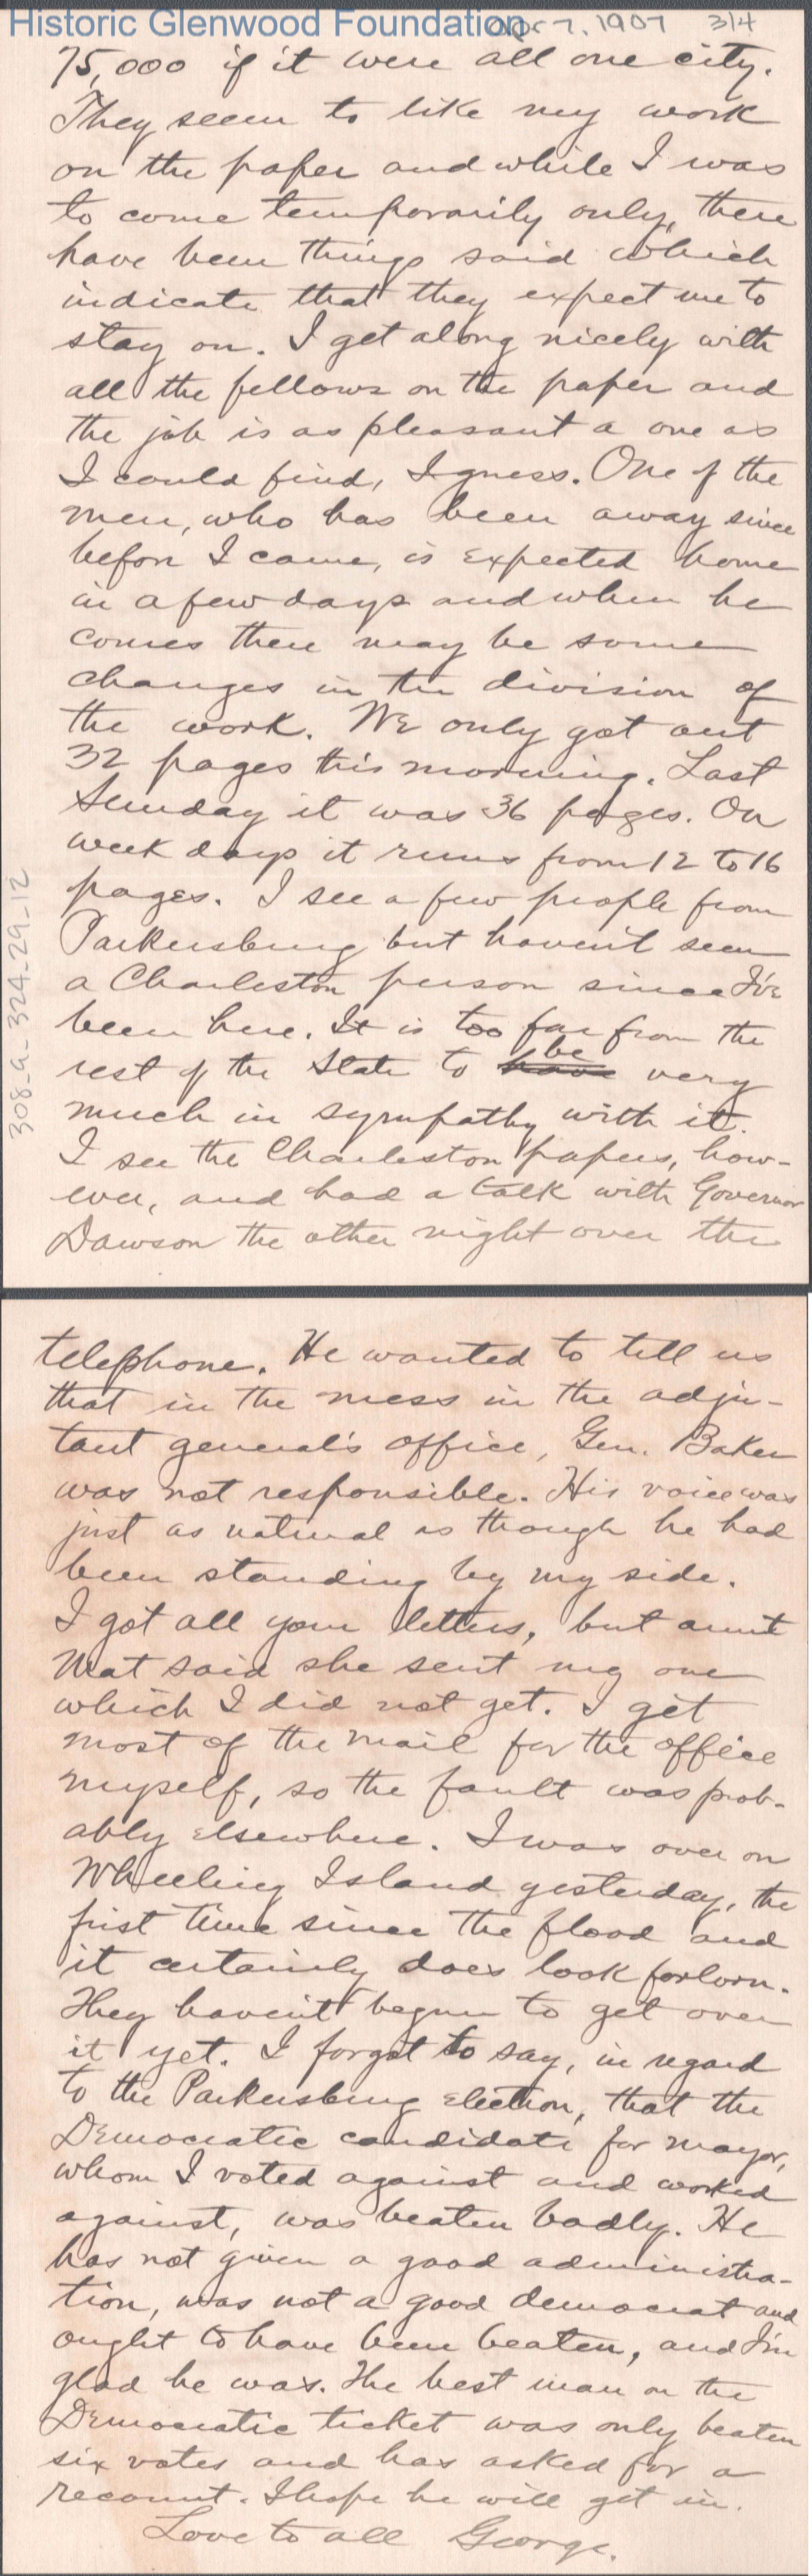 Historic Glenwood Foundation
Apr 7, 1907 3/4
75,000 if it were all one city.
They seem to like my work
on the paper and while I was
to come temporarily only, there
have been things said which
indicate that they expect me to
stay on. I get along nicely with
all the fellows on the paper and
the job is as pleasant a one as
I could find, I guess. One of the
men, who has been away since
before I came, is expected home
in a few days and when he
comes there may be some
changes in the division of
the work. We only got out
32 pages this morning. Last
Sunday it was 36 pages. On
week days it runs from 12 to 16
pages. I see a few people from
Parkersburg but haven't seen
a Charleston person since I've
been here. It is too far from the
rest of the State to have be very
much in sympathy with it.
I see the Charleston papers, how-
ever, and had a talk with Governor
Dawson the other night over the
308-a-324-29-12
telephone. He wanted to tell us
that in the mess in the adju-
tant general's office, Gen. Baker
was not responsible. His voice was
just as natural as though he had
been standing by my side.
I got all your letters, but aunt
Mat said she sent me one
which I did not get. I get
most of the mail for the office
myself, so the fault was prob-
ably elsewhere. I was over on
Wheeling Island yesterday, the
first time since the flood and
it certainly does look forlorn.
They haven't begun to get over
it yet. I forgot to say, in regard
to the Parkersburg election, that the
Democratic candidate for mayor,
whom I voted against and worked
against, was beaten badly. He
has not given a good administra-
tion, was not a good democrat and
ought to have been beaten, and I'm
glad he was. The best man on the
Democratic ticket was only beaten
six votes and has asked for a
recount. I hope he will get in.
Love to all George.